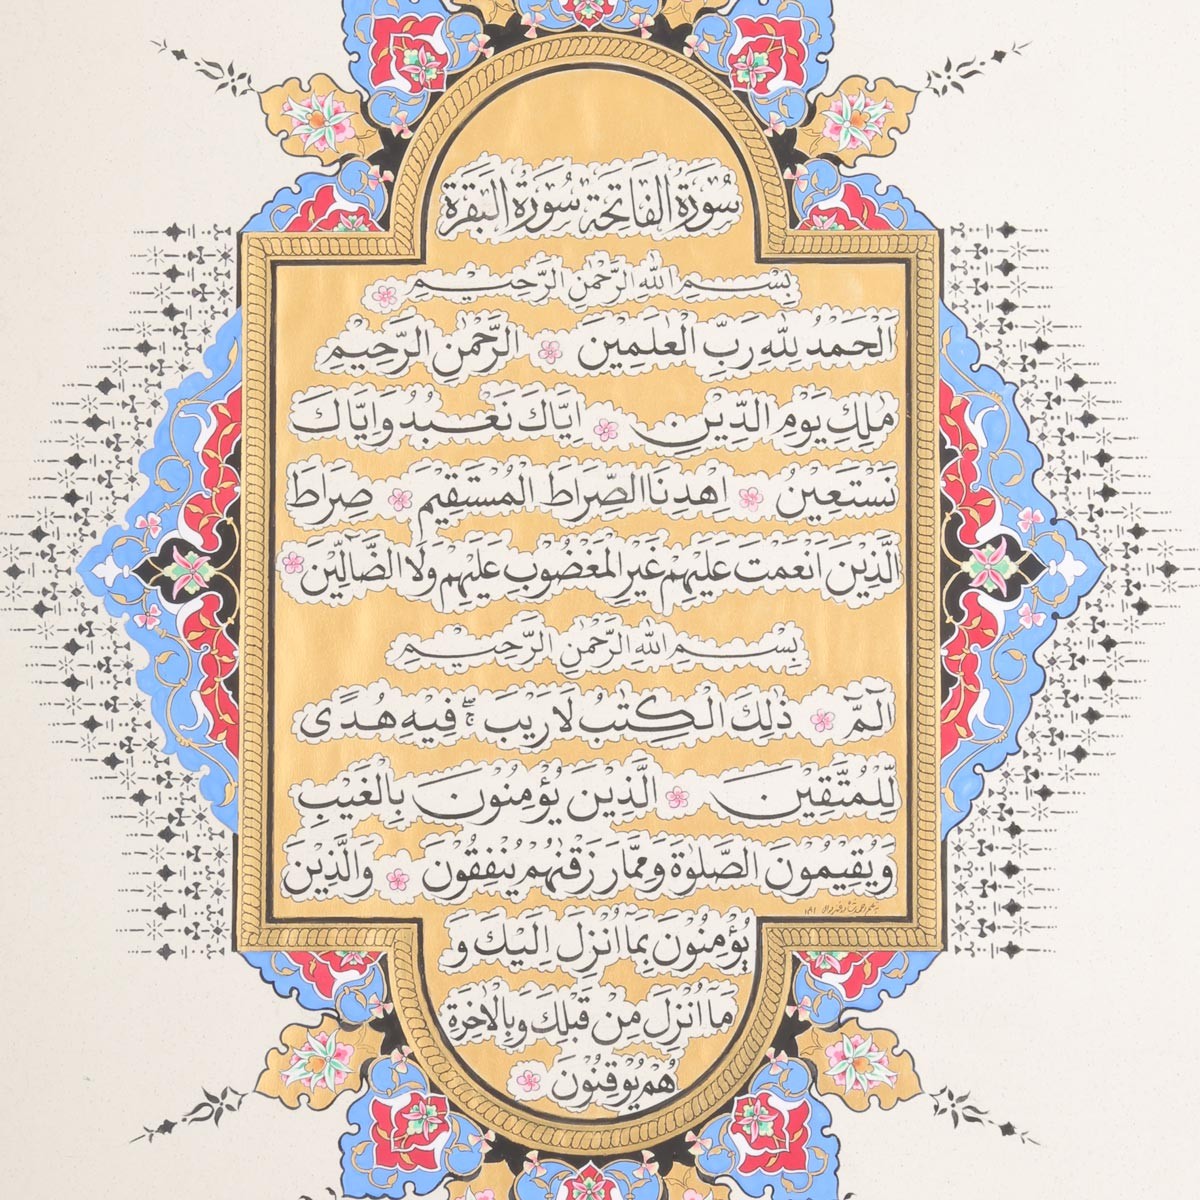 سُورَةُ الفَاتِحَة سُورَةُ البَقَرَة
بِسْمِ اللهِ الرَّحْمٰنِ الرَّحِيْمِ
اَلْحَمْدُ لِلّٰهِ رَبِّ الْعٰلَمِيْنَ الرَّحْمٰنِ الرَّحِيْمِ
مٰلِكِ يَوْمِ الدِّيْنِ اِيَّاكَ نَعْبُدُ وَاِيَّاكَ
نَسْتَعِيْنُ اِهْدِنَا الصِّرَاطَ الْمُسْتَقِيْمَ صِرَاطَ
الَّذِيْنَ اَنْعَمْتَ عَلَيْهِمْ غَيْرِ الْمَغْضُوْبِ عَلَيْهِمْ وَلَا الضَّآلِّيْنَ
بِسْمِ اللهِ الرَّحْمٰنِ الرَّحِيْمِ
الٓمّٓ ذٰلِكَ الْكِتٰبُ لَا رَيْبَ فِيْهِ هُدًى
لِّلْمُتَّقِيْنَ الَّذِيْنَ يُؤْمِنُوْنَ بِالْغَيْبِ
وَيُقِيْمُوْنَ الصَّلٰوةَ وَمِمَّا رَزَقْنٰهُمْ يُنْفِقُوْنَ وَالَّذِيْنَ
يُؤْمِنُوْنَ بِمَا اُنْزِلَ اِلَيْكَ وَ
مَا اُنْزِلَ مِنْ قَبْلِكَ وَبِالْاٰخِرَةِ
هُمْ يُوْقِنُوْنَ